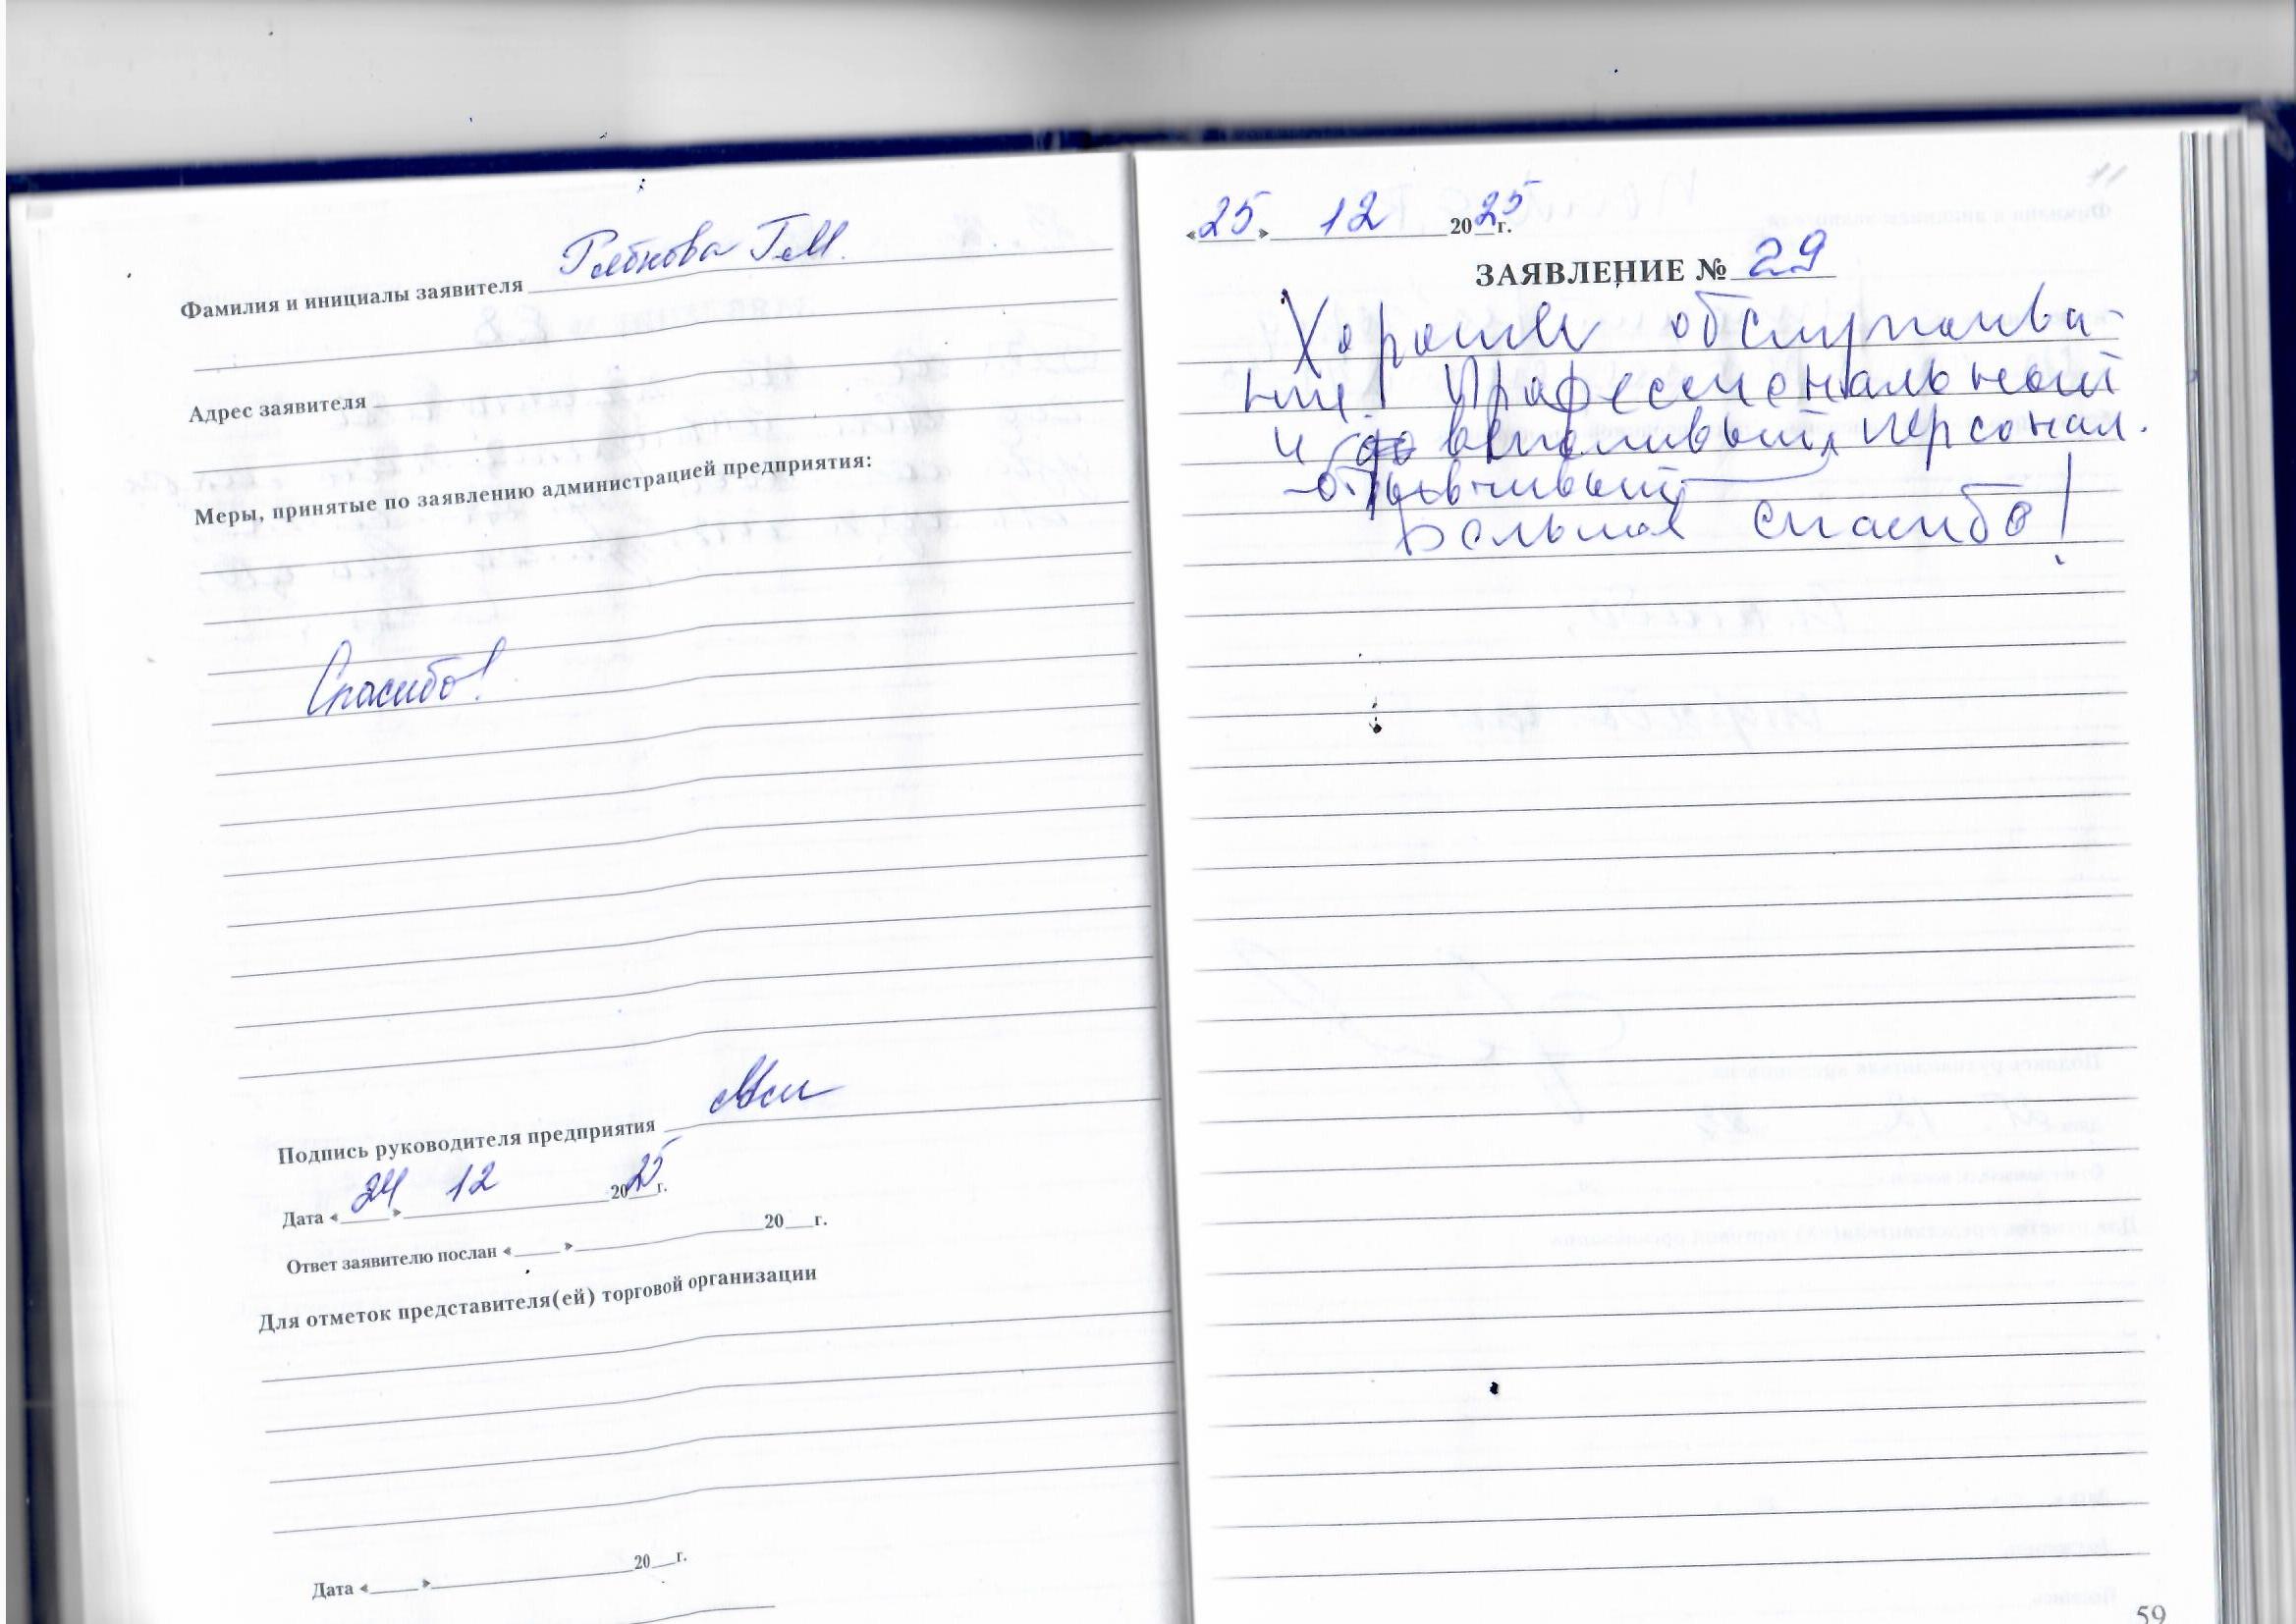 Фамилия и инициалы заявителя Рябкова Г.М.
Адрес заявителя
Меры, принятые по заявлению администрацией предприятия:
Спасибо!
Подпись руководителя предприятия
Дата «24» 12 2025 г.
Ответ заявителю послан «____» 20__г.
Для отметок представителя(ей) торговой организации
Дата «____» 20__г.
«25» 12 2025 г.
ЗАЯВЛЕНИЕ № 29
Хорошее обслужива-
ние! Профессиональный
и персонал.
отзывчивый
Большое спасибо!
59